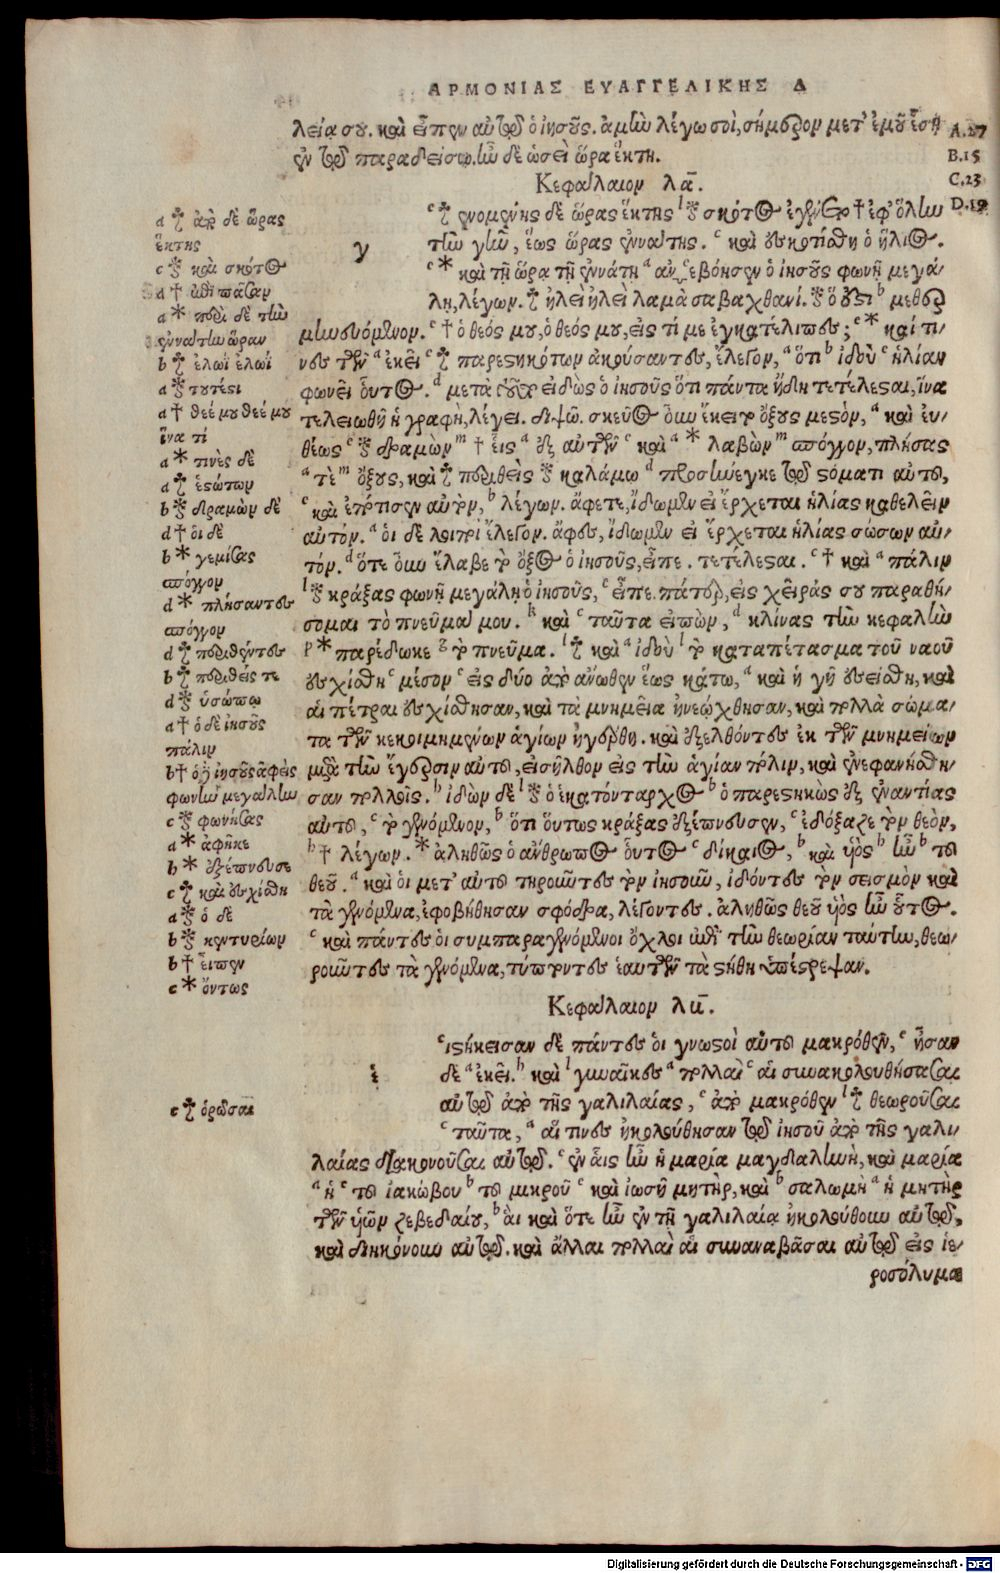 ΑΡΜΟΝΙΑΣ ΕΥΑΓΓΕΛΙΚΗΣ Δ
λείᾳ σου. καὶ εἶπεν αὐτῷ ὁ ἰησοῦς. ἀμὴν λέγω σοὶ, σήμερον μετ' ἐμοῦ ἔσῃ
ἐν τῷ παραδείσῳ. ἦν δὲ ὡσεὶ ὥρα ἕκτη.
A.27
B.15
C.23
D.19
Κεφάλαιον λα.
a ☥ ἀπὸ δὲ ὥρας
ἕκτης
c ⁑ καὶ σκότος
a † ἐπὶ πᾶσαν
a * περὶ δὲ τὴν
ἐννάτην ὥραν
b ☥ ἐλωῒ ἐλωῒ
a ⁑ τουτέστι
a † θεέ μου θεέ μου
ἵνα τί
a * τινὲς δὲ
a ☥ ἑστώτων
b ⁑ δραμὼν δὲ
d † ὁι δὲ
b * γεμίσας
σπόγγον
d * πλήσαντες
σπόγγον
d ☥ περιθέντες
b ☥ περιθείς τε
d ⁑ ὑσώπῳ
a † ὁ δὲ ἰησοῦς
πάλιν
b † ὁ δὲ ἰησοῦς ἀφεὶς
φωνὴν μεγάλην
c ⁑ φωνήσας
a * ἀφῆκε
b * ἐξέπνευσε
c ☥ καὶ ἐσχίσθη
a ⁑ ὁ δὲ
b ⁑ κεντυρίων
b † εἶπεν
c * ὄντως
γ
c ☥ γενομένης δὲ ὥρας ἕκτης l ⁑ σκότος ἐγένετο † ἐφ' ὅλην
τὴν γῆν, ἕως ὥρας ἐννάτης. c καὶ ἐσκοτίσθη ὁ ἥλιος.
c * καὶ τῇ ὥρᾳ τῇ ἐννάτῃ a ἀνεβόησεν ὁ ἰησοῦς φωνῇ μεγά-
λῃ, λέγων. ☥ ἠλεὶ ἠλεὶ λαμὰ σαβαχθανί. ⁑ ὅ ἐστι b μεθερ
μηνευόμενον. c † ὁ θεός μου, ὁ θεός μου, εἰς τί με ἐγκατέλιπες; c * καί τι-
νες τῶν a ἐκεῖ c ☥ παρεστηκότων ἀκούσαντες, ἔλεγον, a ὅτι b ἰδοὺ c ἠλίαν
φωνεῖ οὗτος. d μετὰ τοῦτο εἰδὼς ὁ ἰησοῦς ὅτι πάντα ἤδη τετέλεσται, ἵνα
τελειωθῇ ἡ γραφὴ, λέγει. διψῶ. σκεῦος οὖν ἔκειτο ὄξους μεστὸν, a καὶ εὐ-
θέως c ⁑ δραμὼν m † εἷς a ἐξ αὐτῶν c καὶ a * λαβὼν m σπόγγον, πλήσας
a τὲ m ὄξους, καὶ ☥ περιθεὶς ⁑ καλάμῳ d προσήνεγκε τῷ στόματι αὐτοῦ,
c καὶ ἐπότισεν αὐτὸν, b λέγων. ἄφετε, ἴδωμεν εἰ ἔρχεται ἠλίας καθελεῖν
αὐτόν. a ὁι δὲ λοιποὶ ἔλεγον. ἄφες, ἴδωμεν εἰ ἔρχεται ἠλίας σώσων αὐ-
τόν. d ὅτε οὖν ἔλαβε τὸ ὄξος ὁ ἰησοῦς, εἶπε. τετέλεσται. c † καὶ a πάλιν
l ⁑ κράξας φωνῇ μεγάλῃ ὁ ἰησοῦς, c εἶπε. πάτερ, εἰς χεῖράς σου παραθή-
σομαι τὸ πνεῦμά μου. k καὶ c ταῦτα εἰπὼν, d κλίνας τὴν κεφαλὴν
p * παρέδωκε g τὸ πνεῦμα. l ☥ καὶ a ἰδοὺ l τὸ καταπέτασμα τοῦ ναοῦ
ἐσχίσθη c μέσον c εἰς δύο ἀπὸ ἄνωθεν ἕως κάτω, a καὶ ἡ γῆ ἐσείσθη, καὶ
αἱ πέτραι ἐσχίσθησαν, καὶ τὰ μνημεῖα ἠνεῴχθησαν, καὶ πολλὰ σώμα-
τα τῶν κεκοιμημένων ἁγίων ἠγέρθη. καὶ ἐξελθόντες ἐκ τῶν μνημείων
μετὰ τὴν ἔγερσιν αὐτοῦ, εἰσῆλθον εἰς τὴν ἁγίαν πόλιν, καὶ ἐνεφανίσθη-
σαν πολλοῖς. h ἰδὼν δὲ l ⁑ ὁ ἑκατόνταρχος b ὁ παρεστηκὼς ἐξ ἐναντίας
αὐτοῦ, c τὸ γενόμενον, b ὅτι οὕτως κράξας ἐξέπνευσεν, c ἐδόξαζε τὸν θεὸν,
h † λέγων. * ἀληθῶς ὁ ἄνθρωπος οὗτος c δίκαιος, b καὶ υἱὸς h ἦν b τοῦ
θεοῦ. a καὶ ὁι μετ' αὐτοῦ τηροῦντες τὸν ἰησοῦν, ἰδόντες τὸν σεισμὸν καὶ
τὰ γενόμενα, ἐφοβήθησαν σφόδρα, λέγοντες. ἀληθῶς θεοῦ υἱὸς ἦν οὗτος.
c καὶ πάντες ὁι συμπαραγενόμενοι ὄχλοι ἐπὶ τὴν θεωρίαν ταύτην, θεω-
ροῦντες τὰ γενόμενα, τύπτοντες ἑαυτῶν τὰ στήθη ὑπέστρεψαν.
Κεφάλαιον λβ.
ε
c ☥ ὁρῶσαι
c ιστήκεισαν δὲ πάντες ὁι γνωστοὶ αὐτοῦ μακρόθεν, c ἦσαν
δὲ a ἐκεῖ. h καὶ l γυναῖκες a πολλαὶ c αἱ συνακολουθήσασαι
αὐτῷ ἀπὸ τῆς γαλιλαίας, c ἀπὸ μακρόθεν l ☥ θεωροῦσαι
c ταῦτα, a αἵ τινες ἠκολούθησαν τῷ ἰησοῦ ἀπὸ τῆς γαλι-
λαίας διακονοῦσαι αὐτῷ. c ἐν αἷς ἦν ἡ μαρία μαγδαληνὴ, καὶ μαρία
a ἡ c τοῦ ἰακώβου b τοῦ μικροῦ c καὶ ἰωσῆ μητὴρ, καὶ b σαλωμὴ a ἡ μητὴρ
τῶν υἱῶν ζεβεδαίου, b ἃι καὶ ὅτε ἦν ἐν τῇ γαλιλαίᾳ ἠκολούθουν αὐτῷ,
καὶ διηκόνουν αὐτῷ. καὶ ἄλλαι πολλαὶ αἱ συναναβᾶσαι αὐτῷ εἰς ἱε-
ροσόλυμα
Digitalisierung gefördert durch die Deutsche Forschungsgemeinschaft - DFG